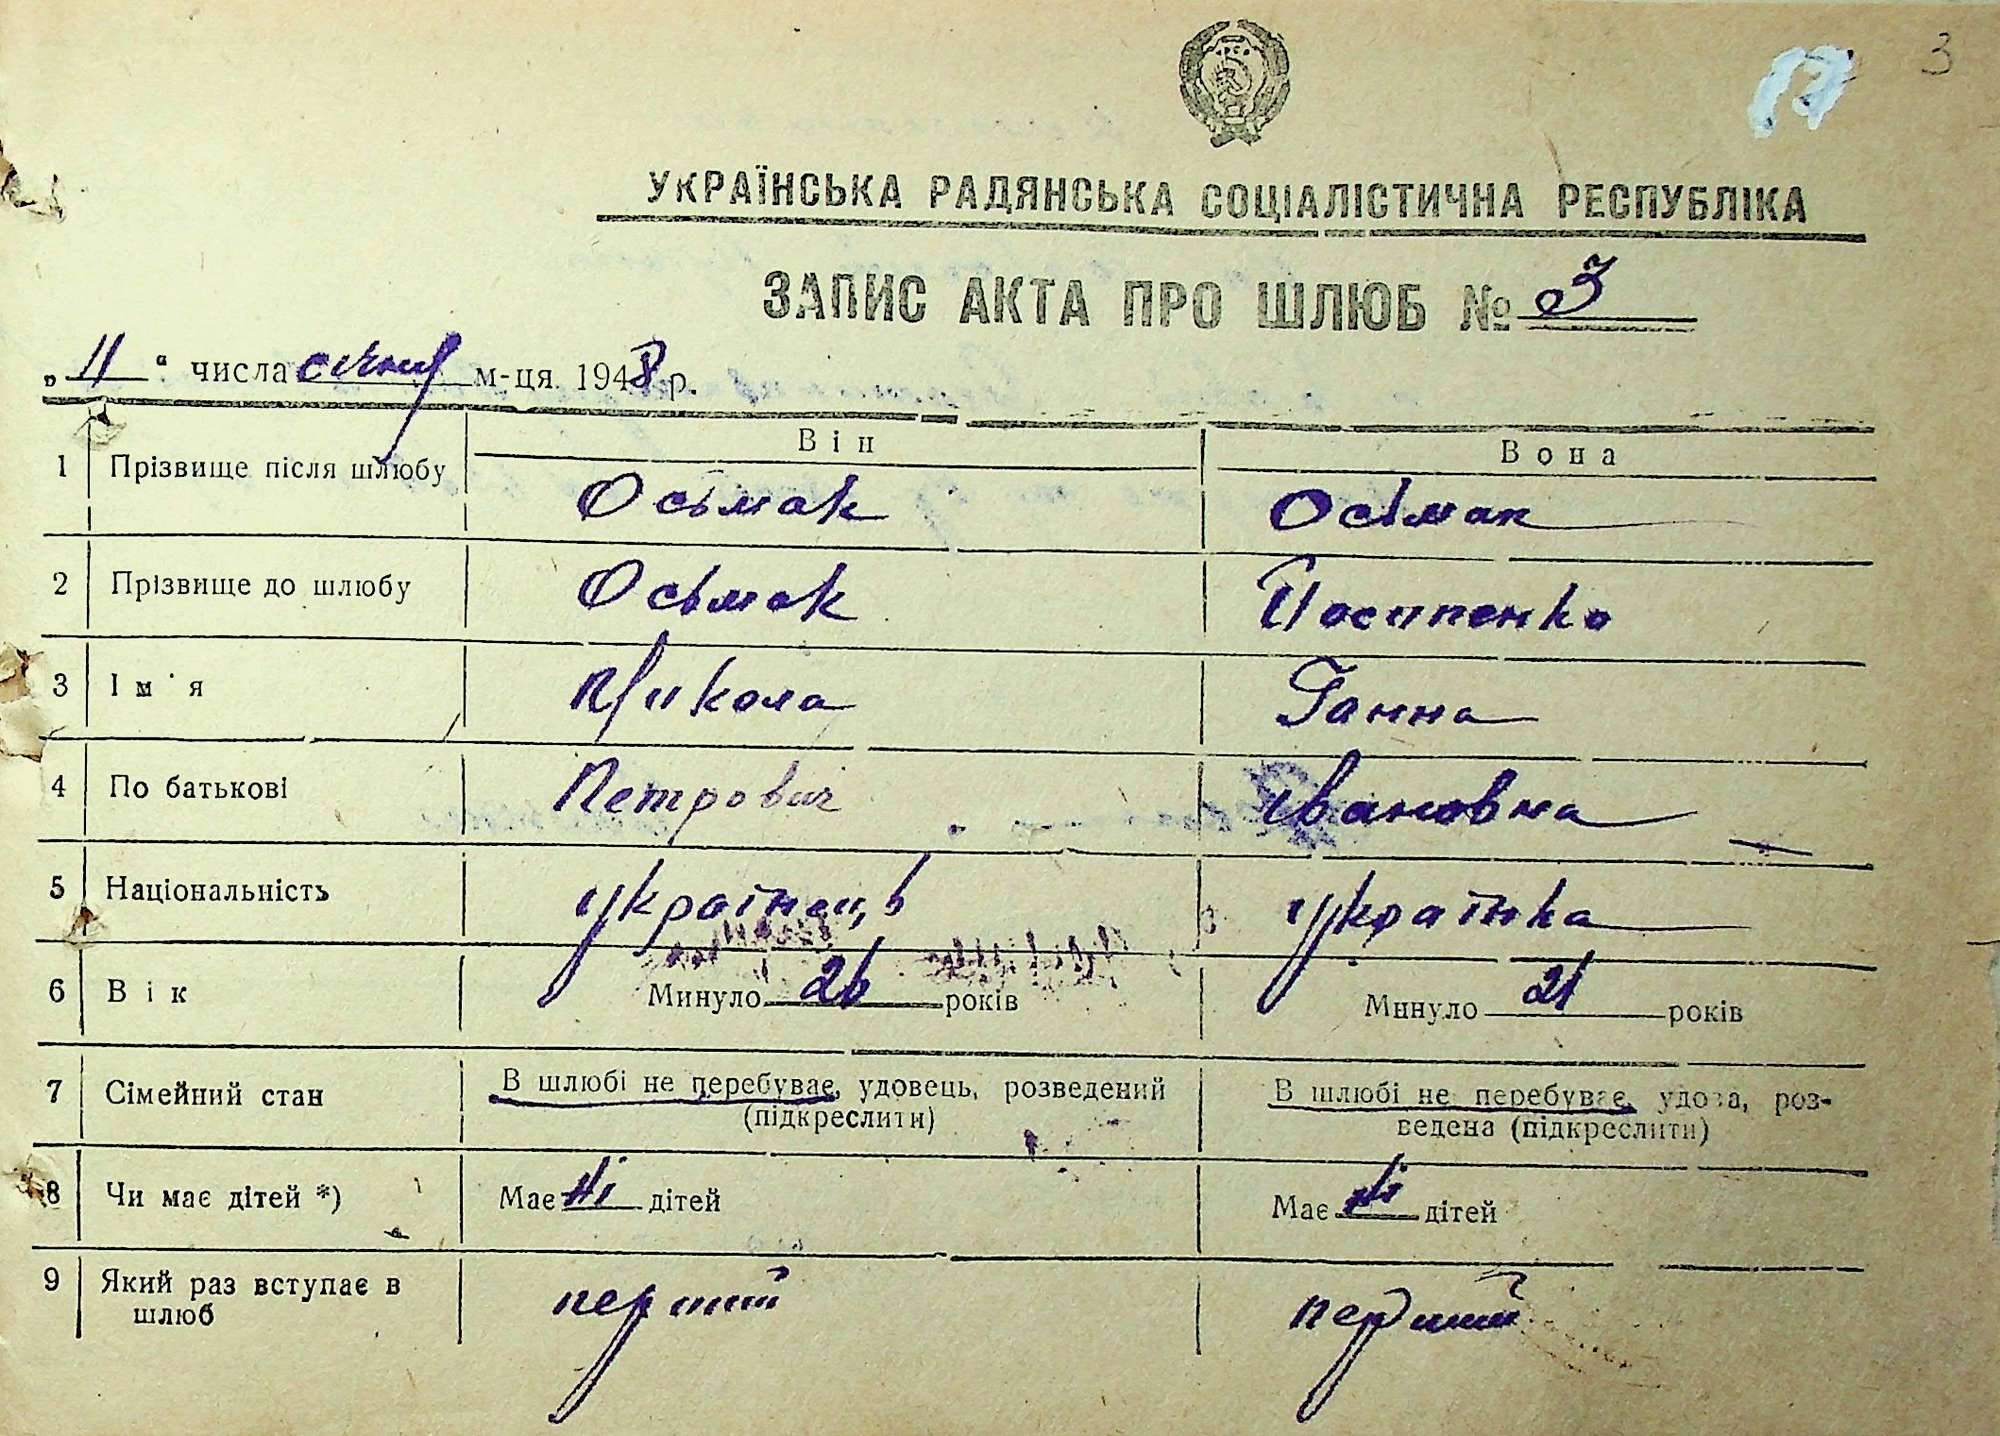 3
17
УКРАЇНСЬКА РАДЯНСЬКА СОЦІАЛІСТИЧНА РЕСПУБЛІКА
ЗАПИС АКТА ПРО ШЛЮБ № 3
„ 11 “ числа січня м-ця 1948 р.
Він Вона
1 Прізвище після шлюбу Осьмак Осьмак
2 Прізвище до шлюбу Осьмак Йосипенко
3 Ім'я Микола Ганна
4 По батькові Петрович Івановна
5 Національність українець українка
6 Вік Минуло 26 років Минуло 21 років
7 Сімейний стан В шлюбі не перебуває, удовець, розведений В шлюбі не перебуває, удова, роз-
(підкреслити) ведена (підкреслити)
8 Чи має дітей *) Має ні дітей Має ні дітей
9 Який раз вступає в перший перший
шлюб